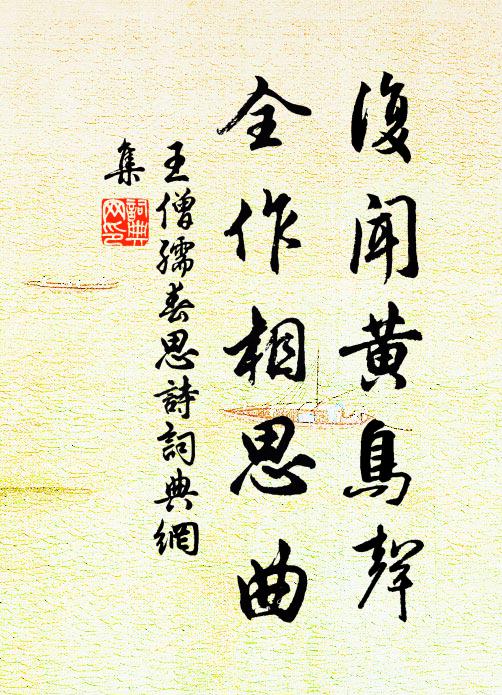 復闻黄鳥聲
全作相思曲
王僧孺春思詩詞典網
集
詞典
网印